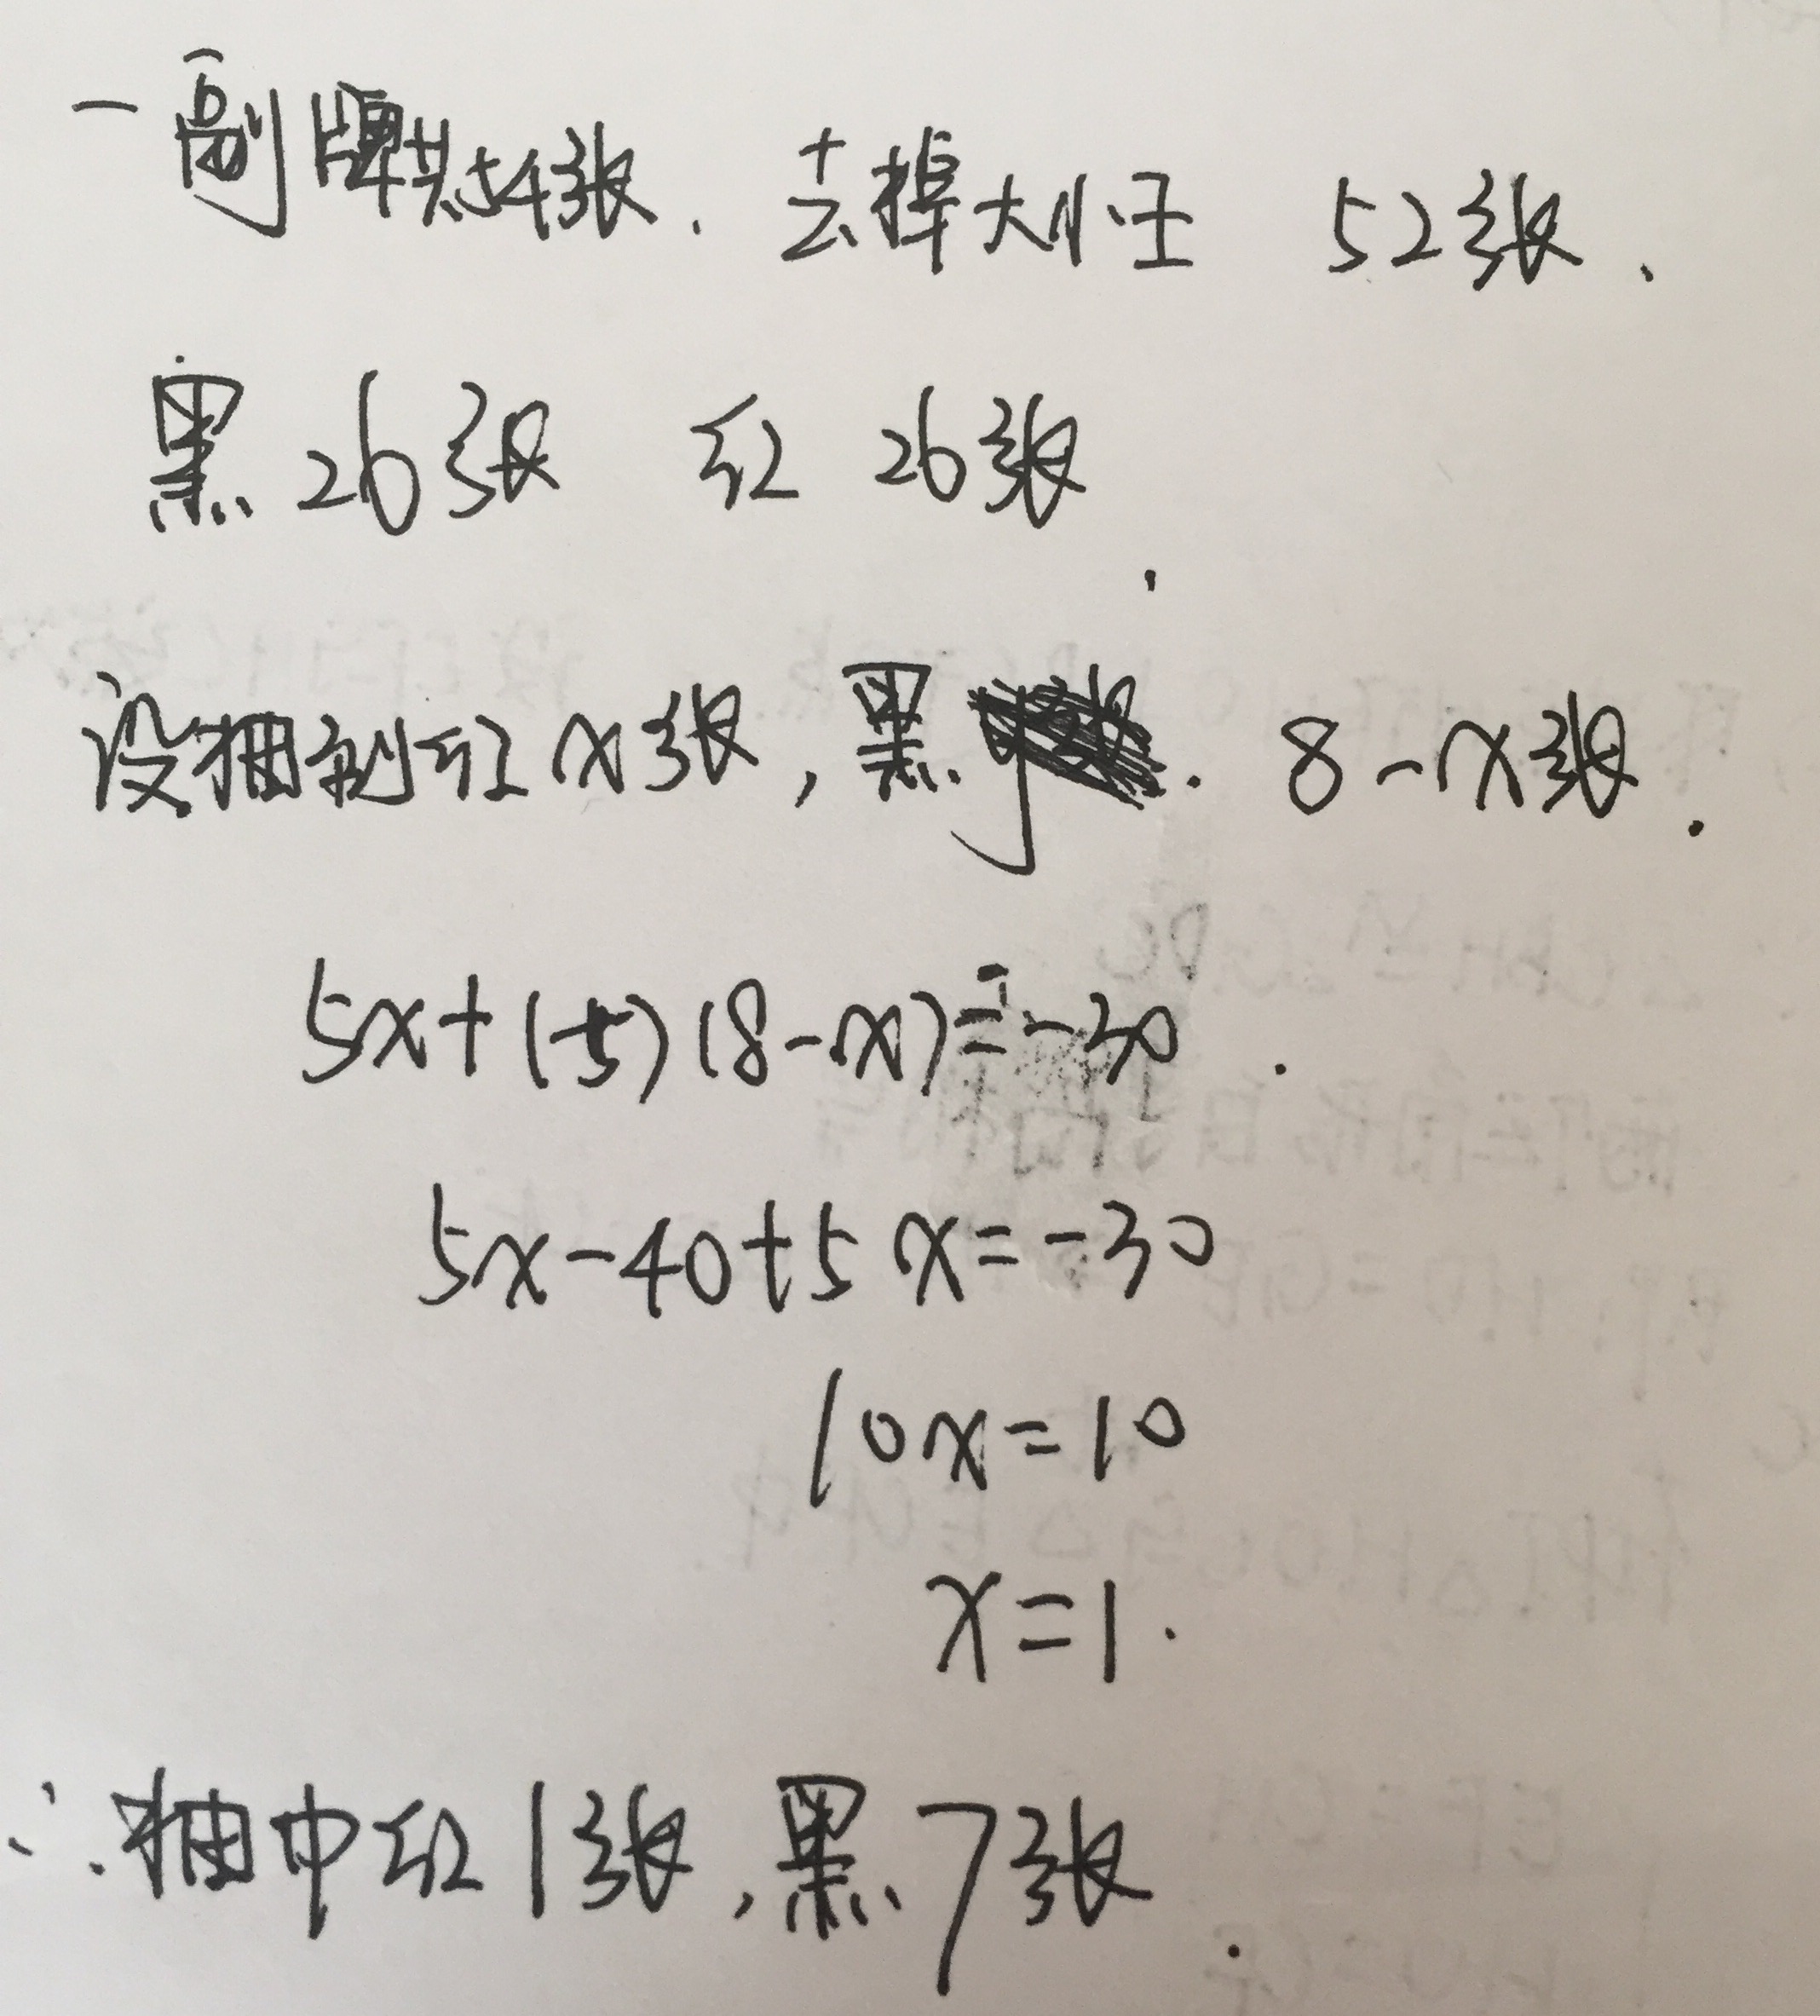 一副牌共54张. 去掉大小王 52张.
黑26张 红26张.
设抽到红x张,黑 8-x张.
5x+(-5)(8-x)=-30.
5x-40+5x=-30
10x=10
x=1.
∴抽中红1张,黑7张.